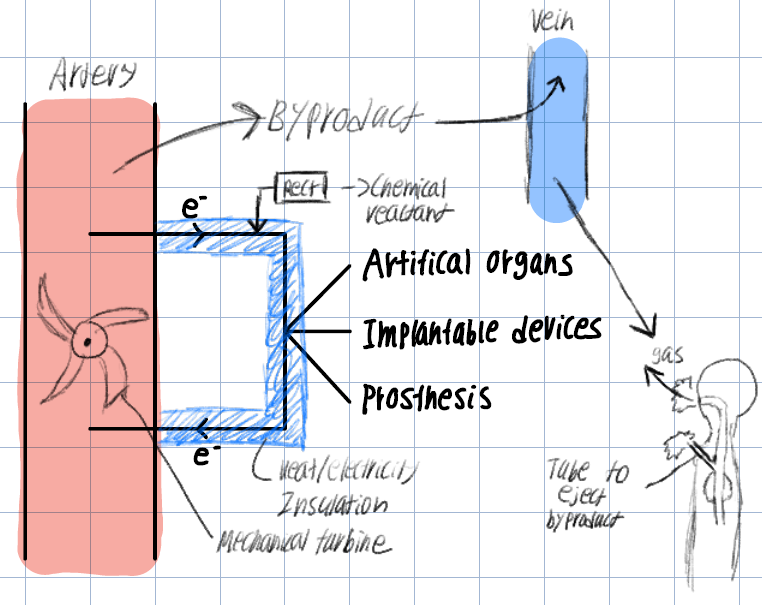 Vein
Artery
Byproduct
Rect → Chemical
reactant
e⁻
Artifical organs
Implantable devices
Prosthesis
gas
e⁻
Heat/electricity
Insulation
Mechanical turbine
Tube to
eject
byproduct